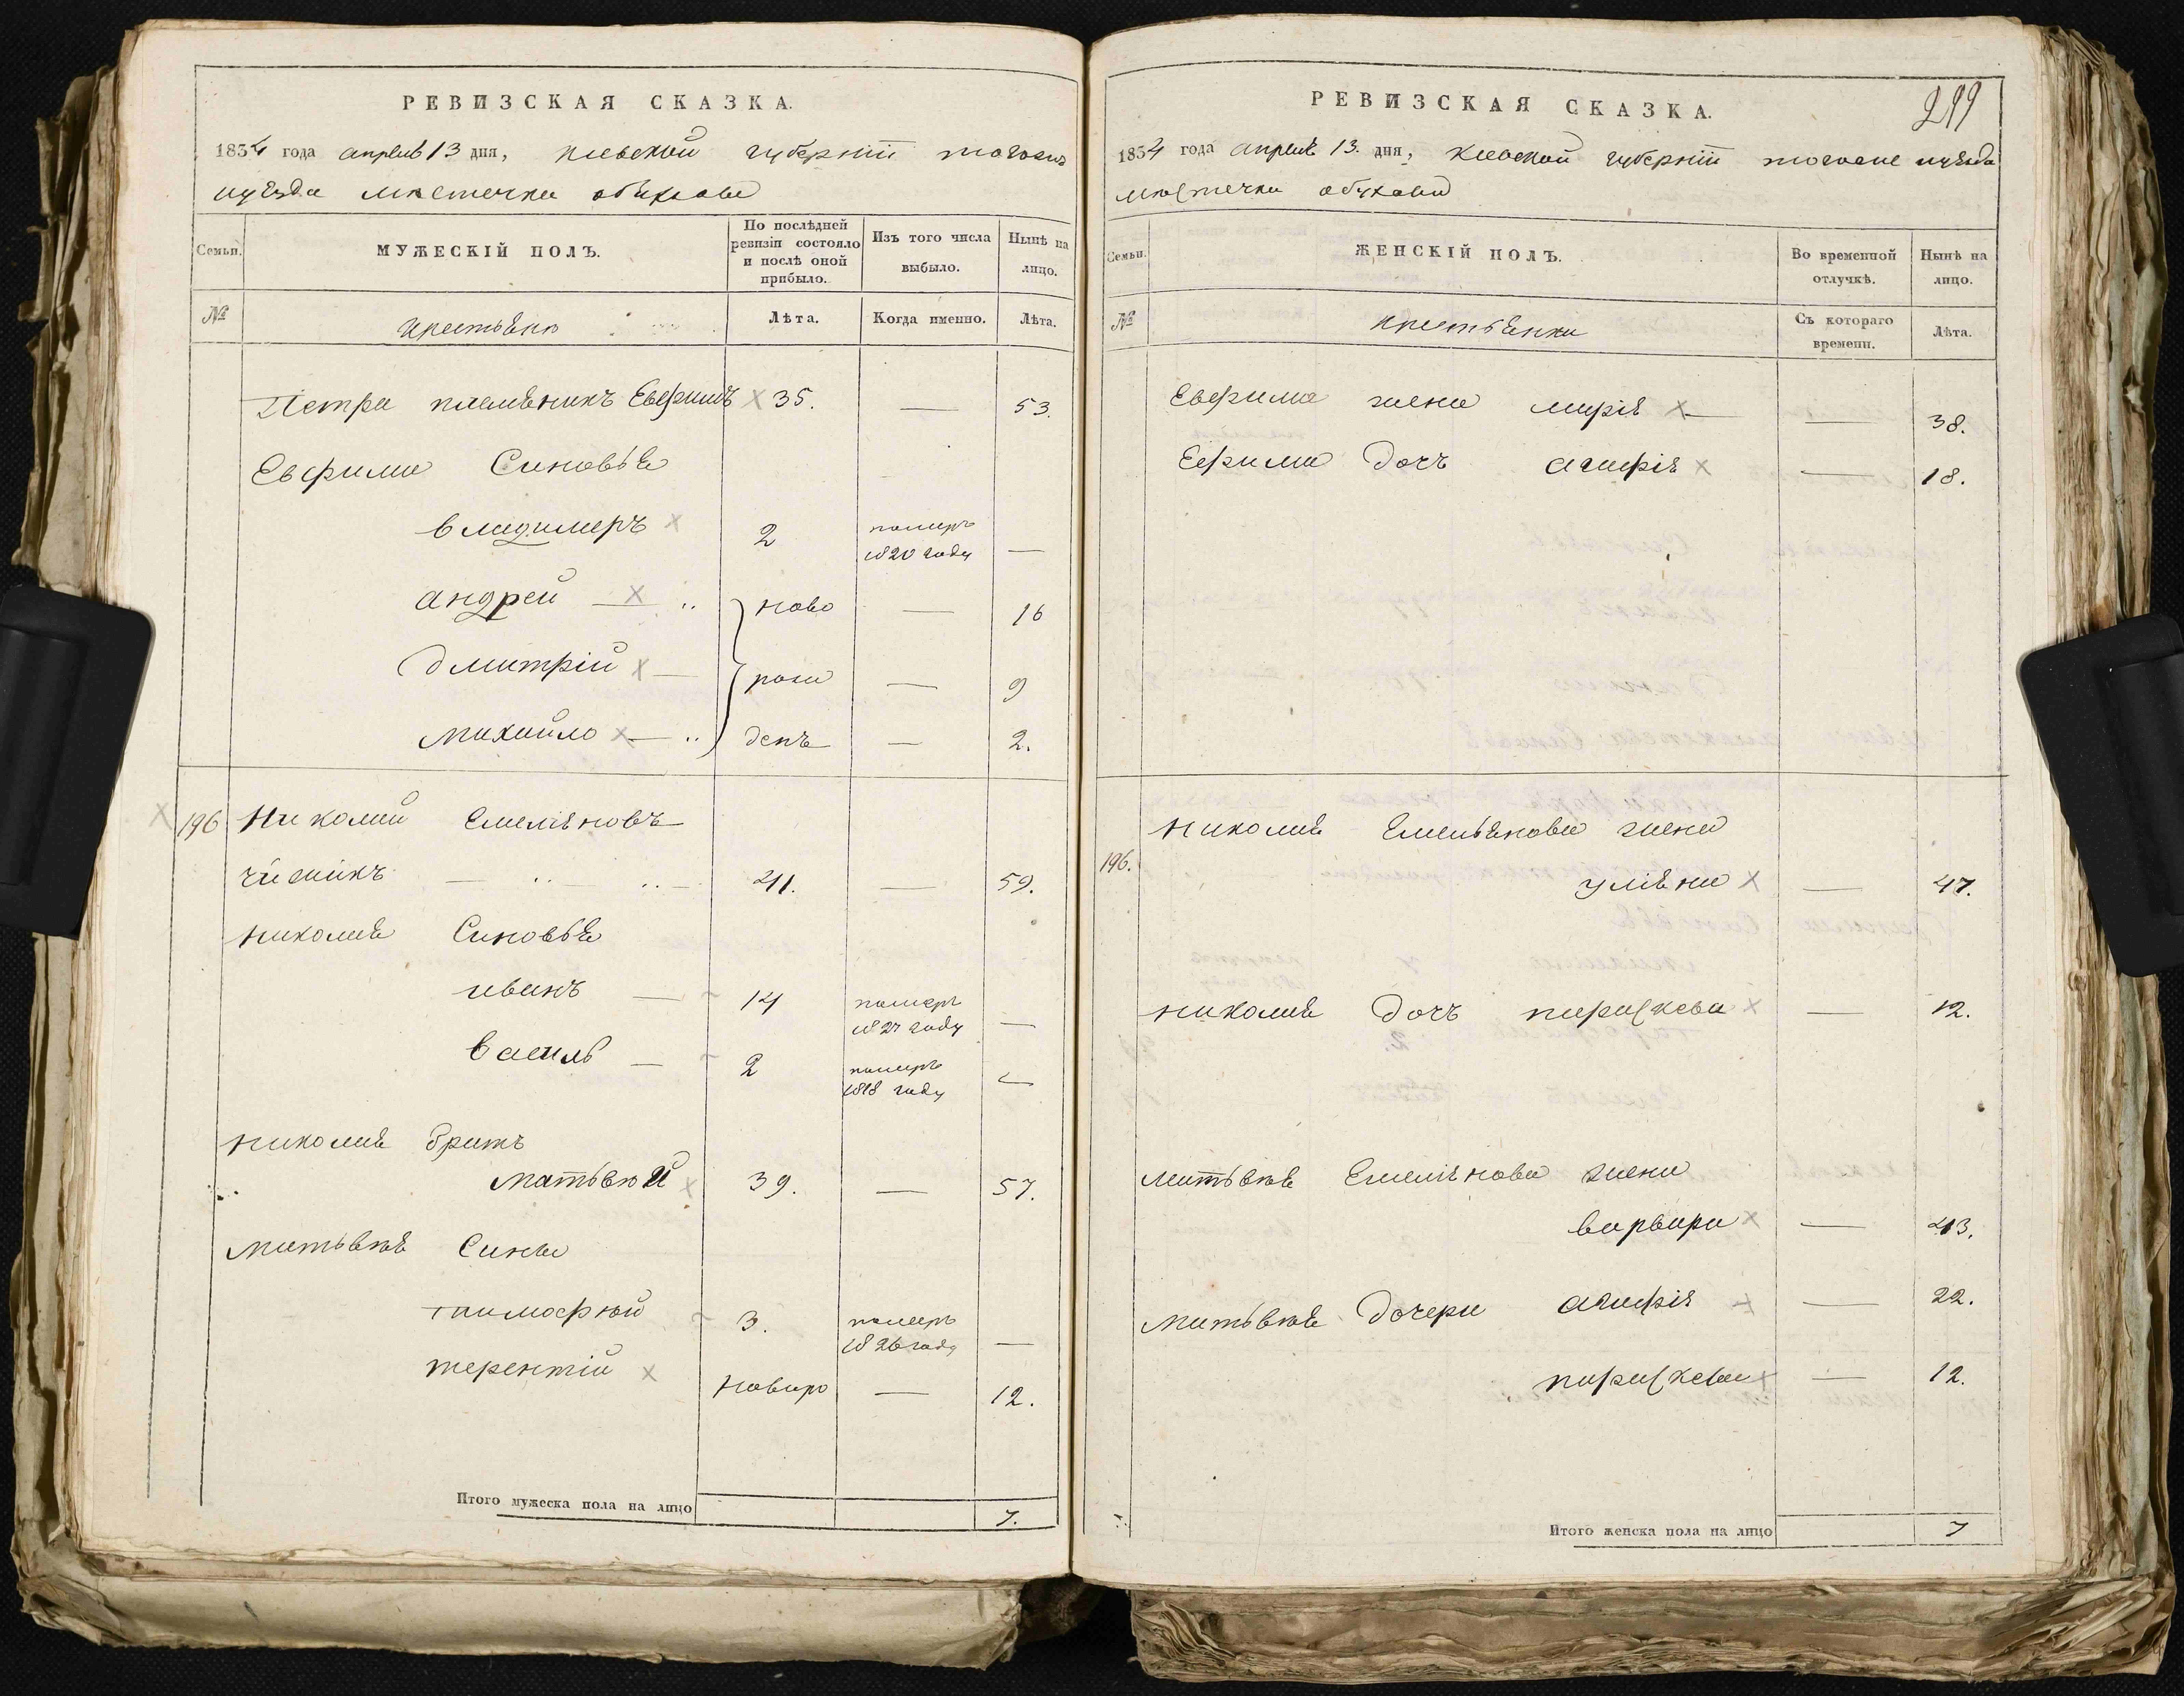 РЕВИЗСКАЯ СКАЗКА.
1834 года апреля 13 дня, киевской губернии тогожъ
уѣзда мѣстечка обухова
Семьи. МУЖЕСКІЙ ПОЛЪ. По послѣдней ревизіи состояло и послѣ оной прибыло. Изъ того числа выбыло. Нынѣ на лицо.
№ крестьяне Лѣта. Когда именно. Лѣта.
Петра племѣникъ Евфимъ 35. — 53.
Евфима Синовья
владимеръ 2 померъ 1820 году —
андрей ново — 16
дмитрій рож — 9
михайло денъ — 2.
196 Николай Емеляновъ
чижикъ 41. — 59.
николая Синовья
иванъ — 14 померъ 1827 году —
василь — 2 померъ 1818 году —
николая братъ
матвѣй 39. — 57.
матвѣя Сины
тимофѣй 3. померъ 1826 году —
терентій новоро — 12.
Итого мужеска пола на лицо 7.
299
РЕВИЗСКАЯ СКАЗКА.
1834 года апреля 13. дня, киевской губернии тогоже уѣзда
мѣстечка обухова
Семьи. ЖЕНСКІЙ ПОЛЪ. Во временной отлучкѣ. Нынѣ на лицо.
№ крестьянки Съ котораго времени. Лѣта.
Евфима жена марія — 38.
Ефима дочъ агафія — 18.
николая Емельянова жена
196. уляна — 47.
николая дочъ параскева — 12.
матвѣя Емелянова жена
варвара — 43.
матвѣя дочери агафія — 22.
параскева — 12.
Итого женска пола на лицо 7